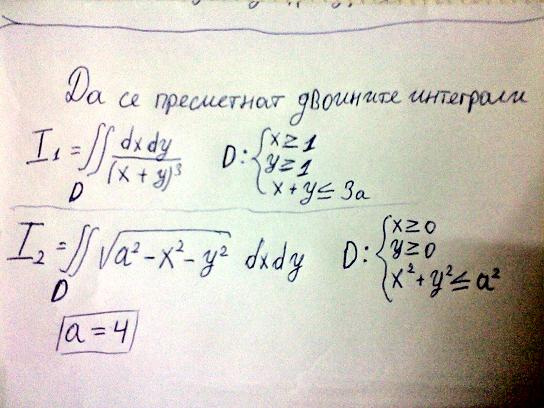 Да се пресметнат двоините интеграли
I₁ = ∬ dxdy/(x + y)³ D: { x ≥ 1
D y ≥ 1
x + y ≤ 3a
I₂ = ∬ √(a² - x² - y²) dxdy D: { x ≥ 0
D y ≥ 0
x² + y² ≤ a²
a = 4